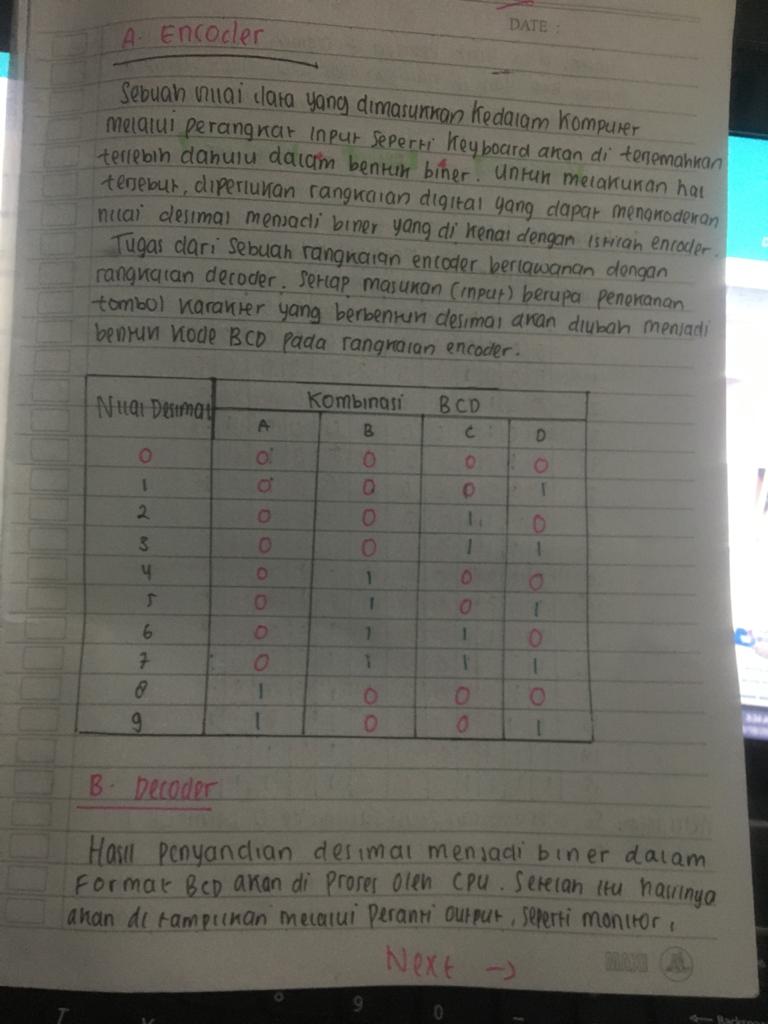 DATE :
A. Encoder
Sebuah nilai data yang dimasukkan kedalam komputer
melalui perangkat input seperti keyboard akan di terjemahkan
terlebih dahulu dalam bentuk biner. Untuk melakukan hal
tersebut, diperlukan rangkaian digital yang dapat mengkodekan
nilai desimal menjadi biner yang di kenal dengan istilah encoder.
Tugas dari sebuah rangkaian encoder berlawanan dengan
rangkaian decoder. Setiap masukan (input) berupa penekanan
tombol karakter yang berbentuk desimal akan diubah menjadi
bentuk kode BCD pada rangkaian encoder.
Nilai Desimal Kombinasi BCD
A B C D
0 0 0 0 0
1 0 0 0 1
2 0 0 1 0
3 0 0 1 1
4 0 1 0 0
5 0 1 0 1
6 0 1 1 0
7 0 1 1 1
8 1 0 0 0
9 1 0 0 1
B. Decoder
Hasil penyandian desimal menjadi biner dalam
Format BCD akan di proses oleh CPU. Setelah itu hasilnya
akan di tampilkan melalui peranti output, seperti monitor,
Next →
9 0